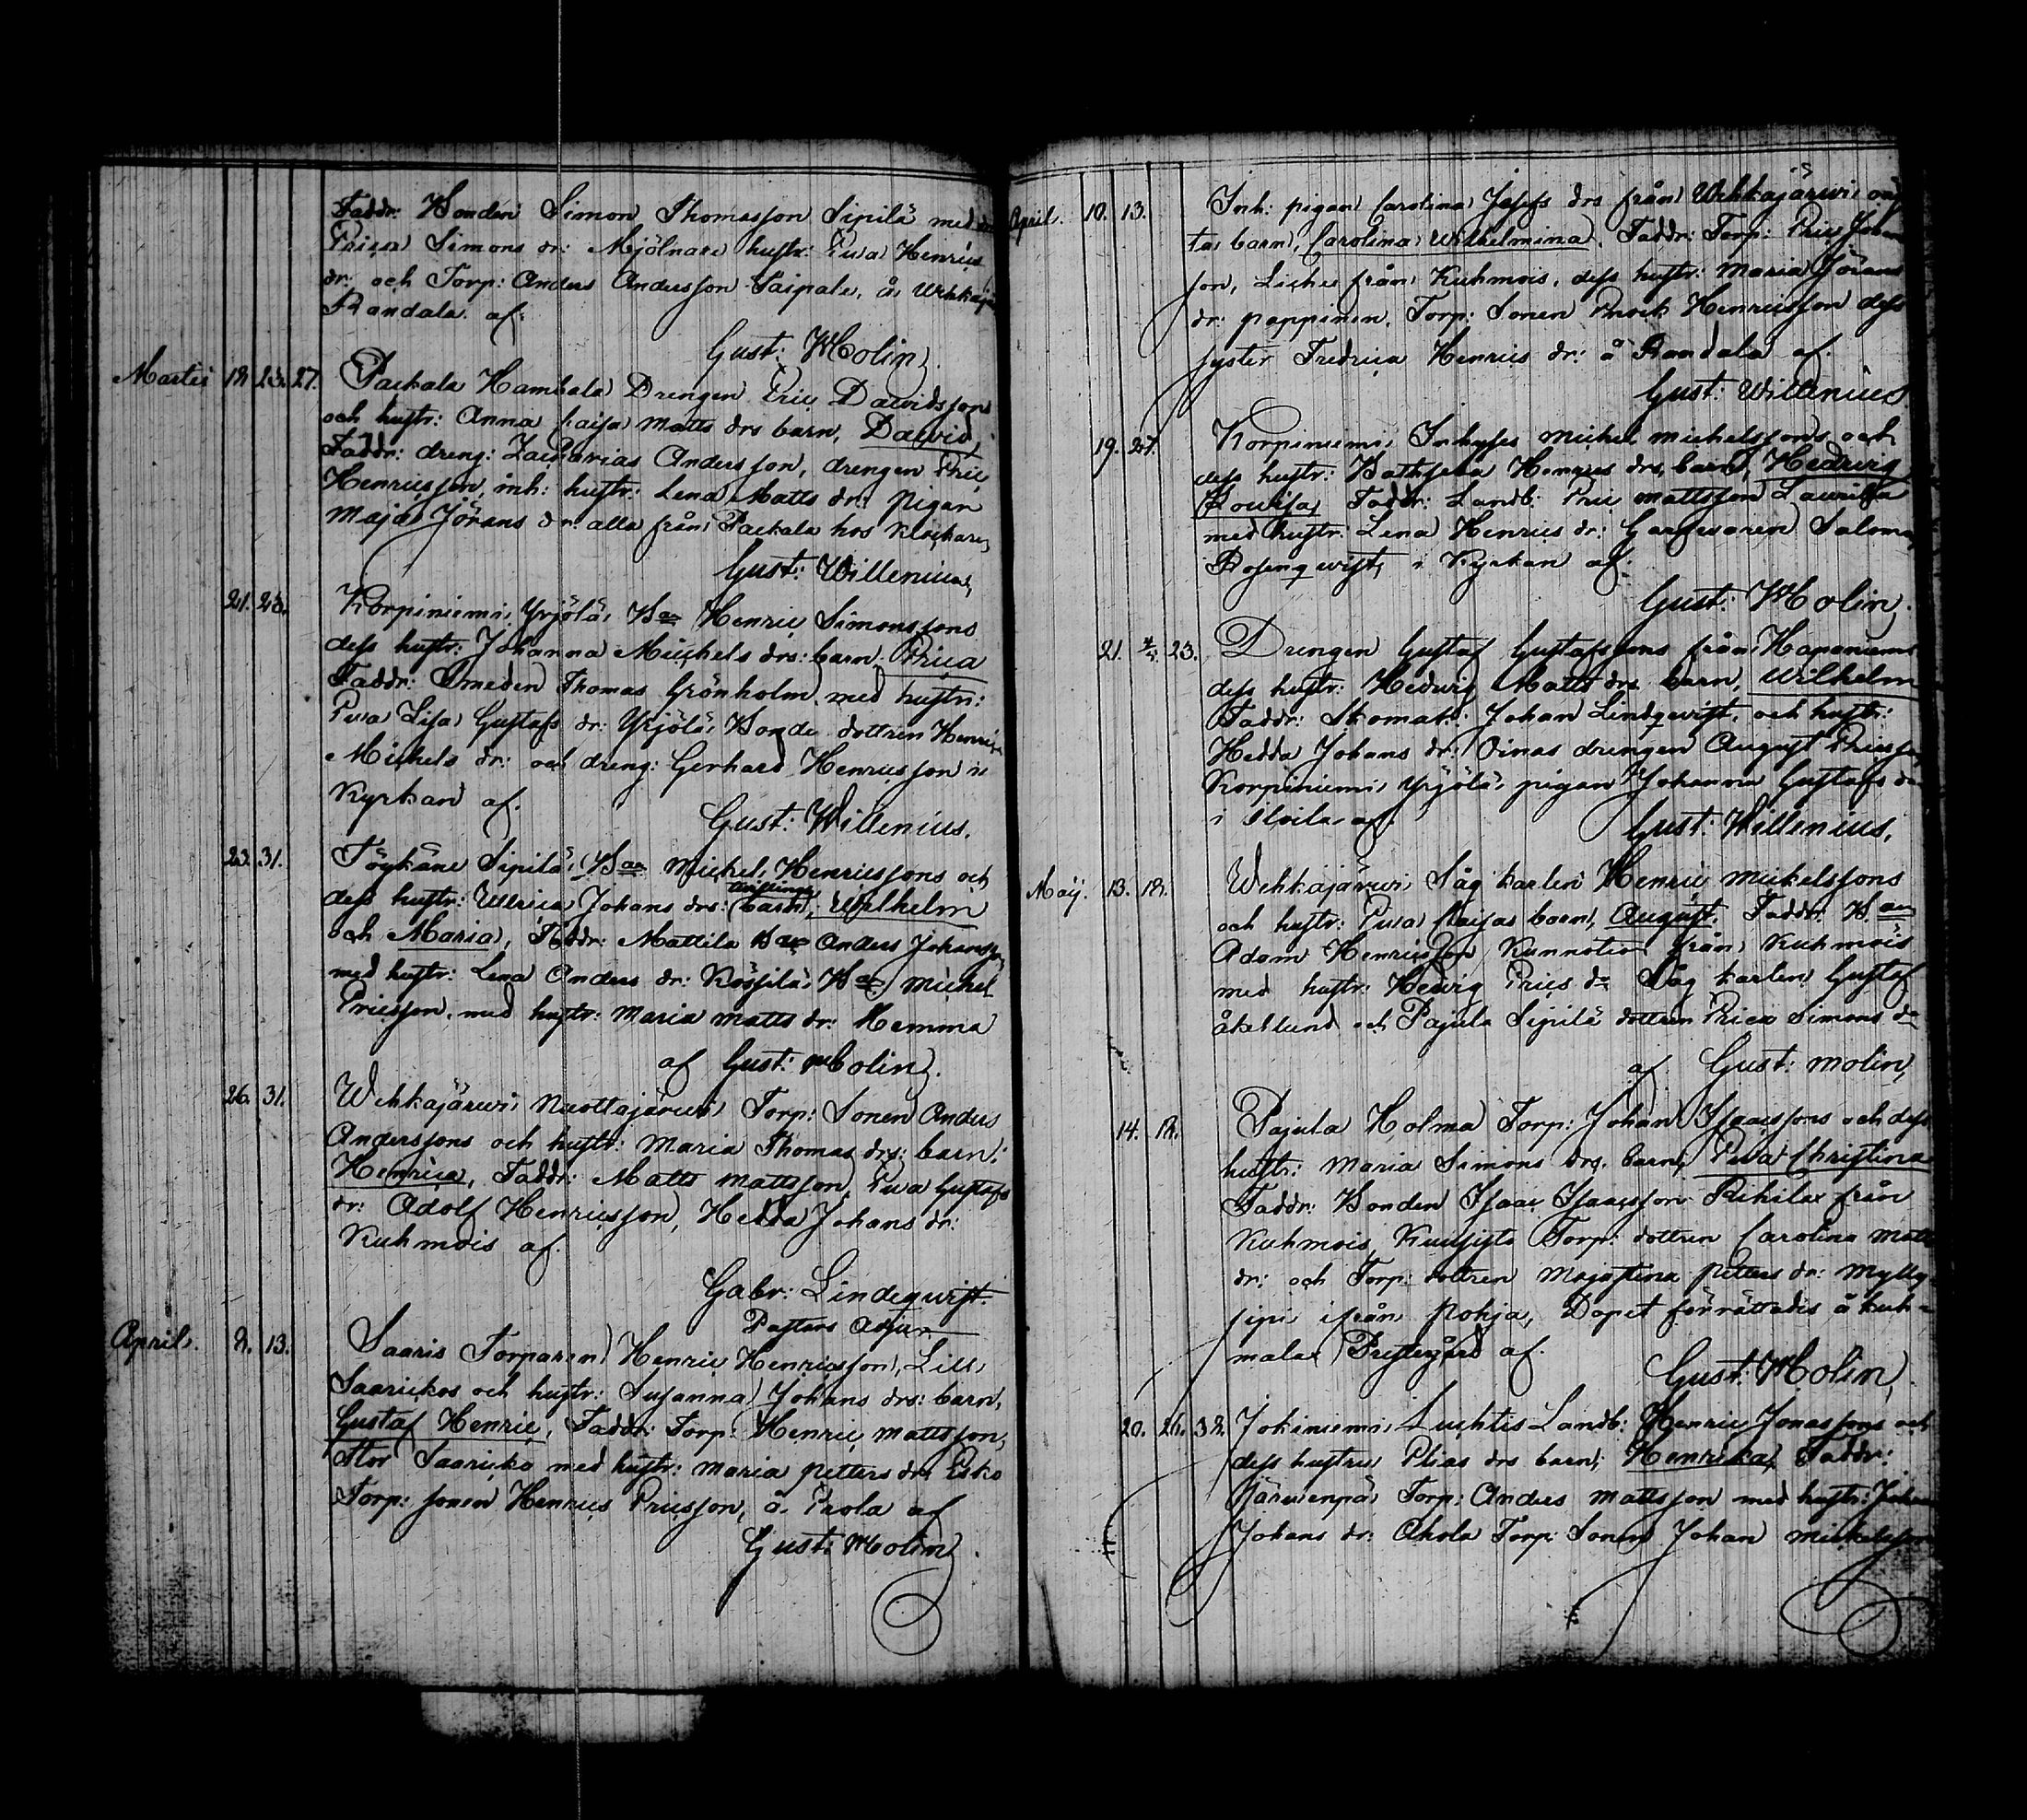 Faddr: Bonden Simon Thomasson Sipilä med
Erica Simons dr: Mjölnare hustr: Eva Henrics
dr: och Torp: Anders Andersson Taipale, å Wehkajär
Randala af:
Gust: Molin.
Martii 18 23. 27. Packala Hambala Drengen Eric Davidssons
och hustr: Anna Caisa Matts drs barn, David,
Faddr: dreng: Zacharias Andersson, drengen Eric
Henricsson, inh: hustr: Lena Matts dr: pigan
Maja Jörans dr: alla från Packala hos Klockaren
Gust: Willenius,
21. 23. Korpiniemi Yrjölä Ban Henric Simonssons
dess hustr: Johanna Michels drs: barn Erica
Faddr: Smeden Thomas Grönholm med hustr:
Eva Lisa Gustafs dr: Yrjölä Bonde dottren Henrica
Michels dr: och dreng: Gerhard Henricsson i
Kyrkan af.
Gust: Willenius.
23. 31. Töykäne Sipilä Ban Michel Henricssons och
dess hustr: Ullrica Johans drs: barn, tvillingar Wilhelm
och Maria, Faddr: Mattila Ban Anders Johansson
med hustr: Lena Anders dr: Kössilä Ban Michel
Ericsson, med hustr: Maria Matts dr: Hemma
af Gust: Molin.
26. 31. Wehkajärwi Nuottajärwi Torp: Sonen Anders
Anderssons och hustr: Maria Thomas drs: barn:
Henrica, Faddr: Matts Mattsson, Eva Gustafs
dr: Adolf Henricsson, Hedda Johans dr:
Kuhmois af.
Gabr: Lindeqwist.
Pastors Adjun
April. 8. 13. Saaris Torparen Henric Henricsson, Lill
Saarickos och hustr: Susanna Johans drs: barn,
Gustaf Henric, Faddr: Torp: Henric Mattsson,
Stor Saaricko med hustr: Maria Petters dr: Esko
Torp: sonen Henrics Ericsson, å Erola af
Gust: Molin.
April. 10. 13. Inh: pigan Carolina Josefs drs från Wehkajärwi oäk
ta barn, Carolina Wilhelmina. Faddr: Torp: Eric Johan
son, Liehes från Kuhmois, dess hustr: Maria Jörans
dr: pappinen. Torp: Sonen Enoch Henricsson dess
syster Fredrica Henrics dr: å Randala af.
Gust: Willenius.
19. 27. Korpiniemi Inhyses Michel Michelssons och
dess hustr: Bathseba Henrics drs, barn, Hedwig
Lovisa, Faddr: Landb: Eric Mattsson Laurila
med hustr: Lena Henrics dr: Garfvaren Salomo,
Rosenqwist, i Kyrkan af:
Gust: Molin.
21. 23. Drengen Gustaf Gustafssons från Haponiemi
dess hustr: Hedwig Matts drs barn, Wilhelm
Faddr: Skomak: Johan Lindqwist, och hustr:
Hedda Johans dr: Oinas drengen August Ericsson
Korpiniemi Yrjölä pigan Johanna Gustafs dr
i af.
Gust: Willenius,
Maij. 13. 18. Wehkajärwi Såg karlen Henric Michelssons
och hustr: Eva Caisas barn, August. Faddr: Ban
Adam Henricsson Kunnotio från Kuhmois
med hustr: Hedvig Erics dr Såg karlen Gustaf
åkerlund och Pajula Sipilä dottren Erica Simons dr
af Gust: Molin,
14. 18. Pajula Holma Torp: Johan Isaacssons och dess
hustr: Maria Simons drs. barn, Eva Christina
Faddr: Bonden Isaac Isaacsson Rihila från
Kuhmois, Kuusisto Torp: dottren Carolina Matts
dr: och Torp: dottren Majastina Petters dr: Mylly
sipi ifrån Pohja, Dopet förrättades å Kuh-
malax Prestegård af.
Gust. Molin,
20. 26. 38. Jokiniemi Luchtis Landb: Henric Jonassons och
dess hustrus Elias drs barn; Henrika, Faddr:
Järwenpä Torp: Anders Mattsson med hustr: Johan
Johans dr: Ahola Torp: Sonen Johan Mickelsson